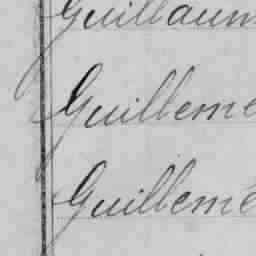 Guillaum
Guilleme
Guilleme